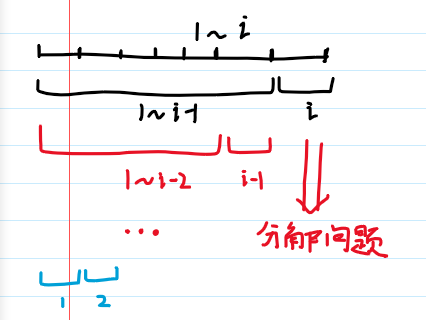 1~i
1~i-1 i
1~i-2 i-1
...
分解问题
1 2